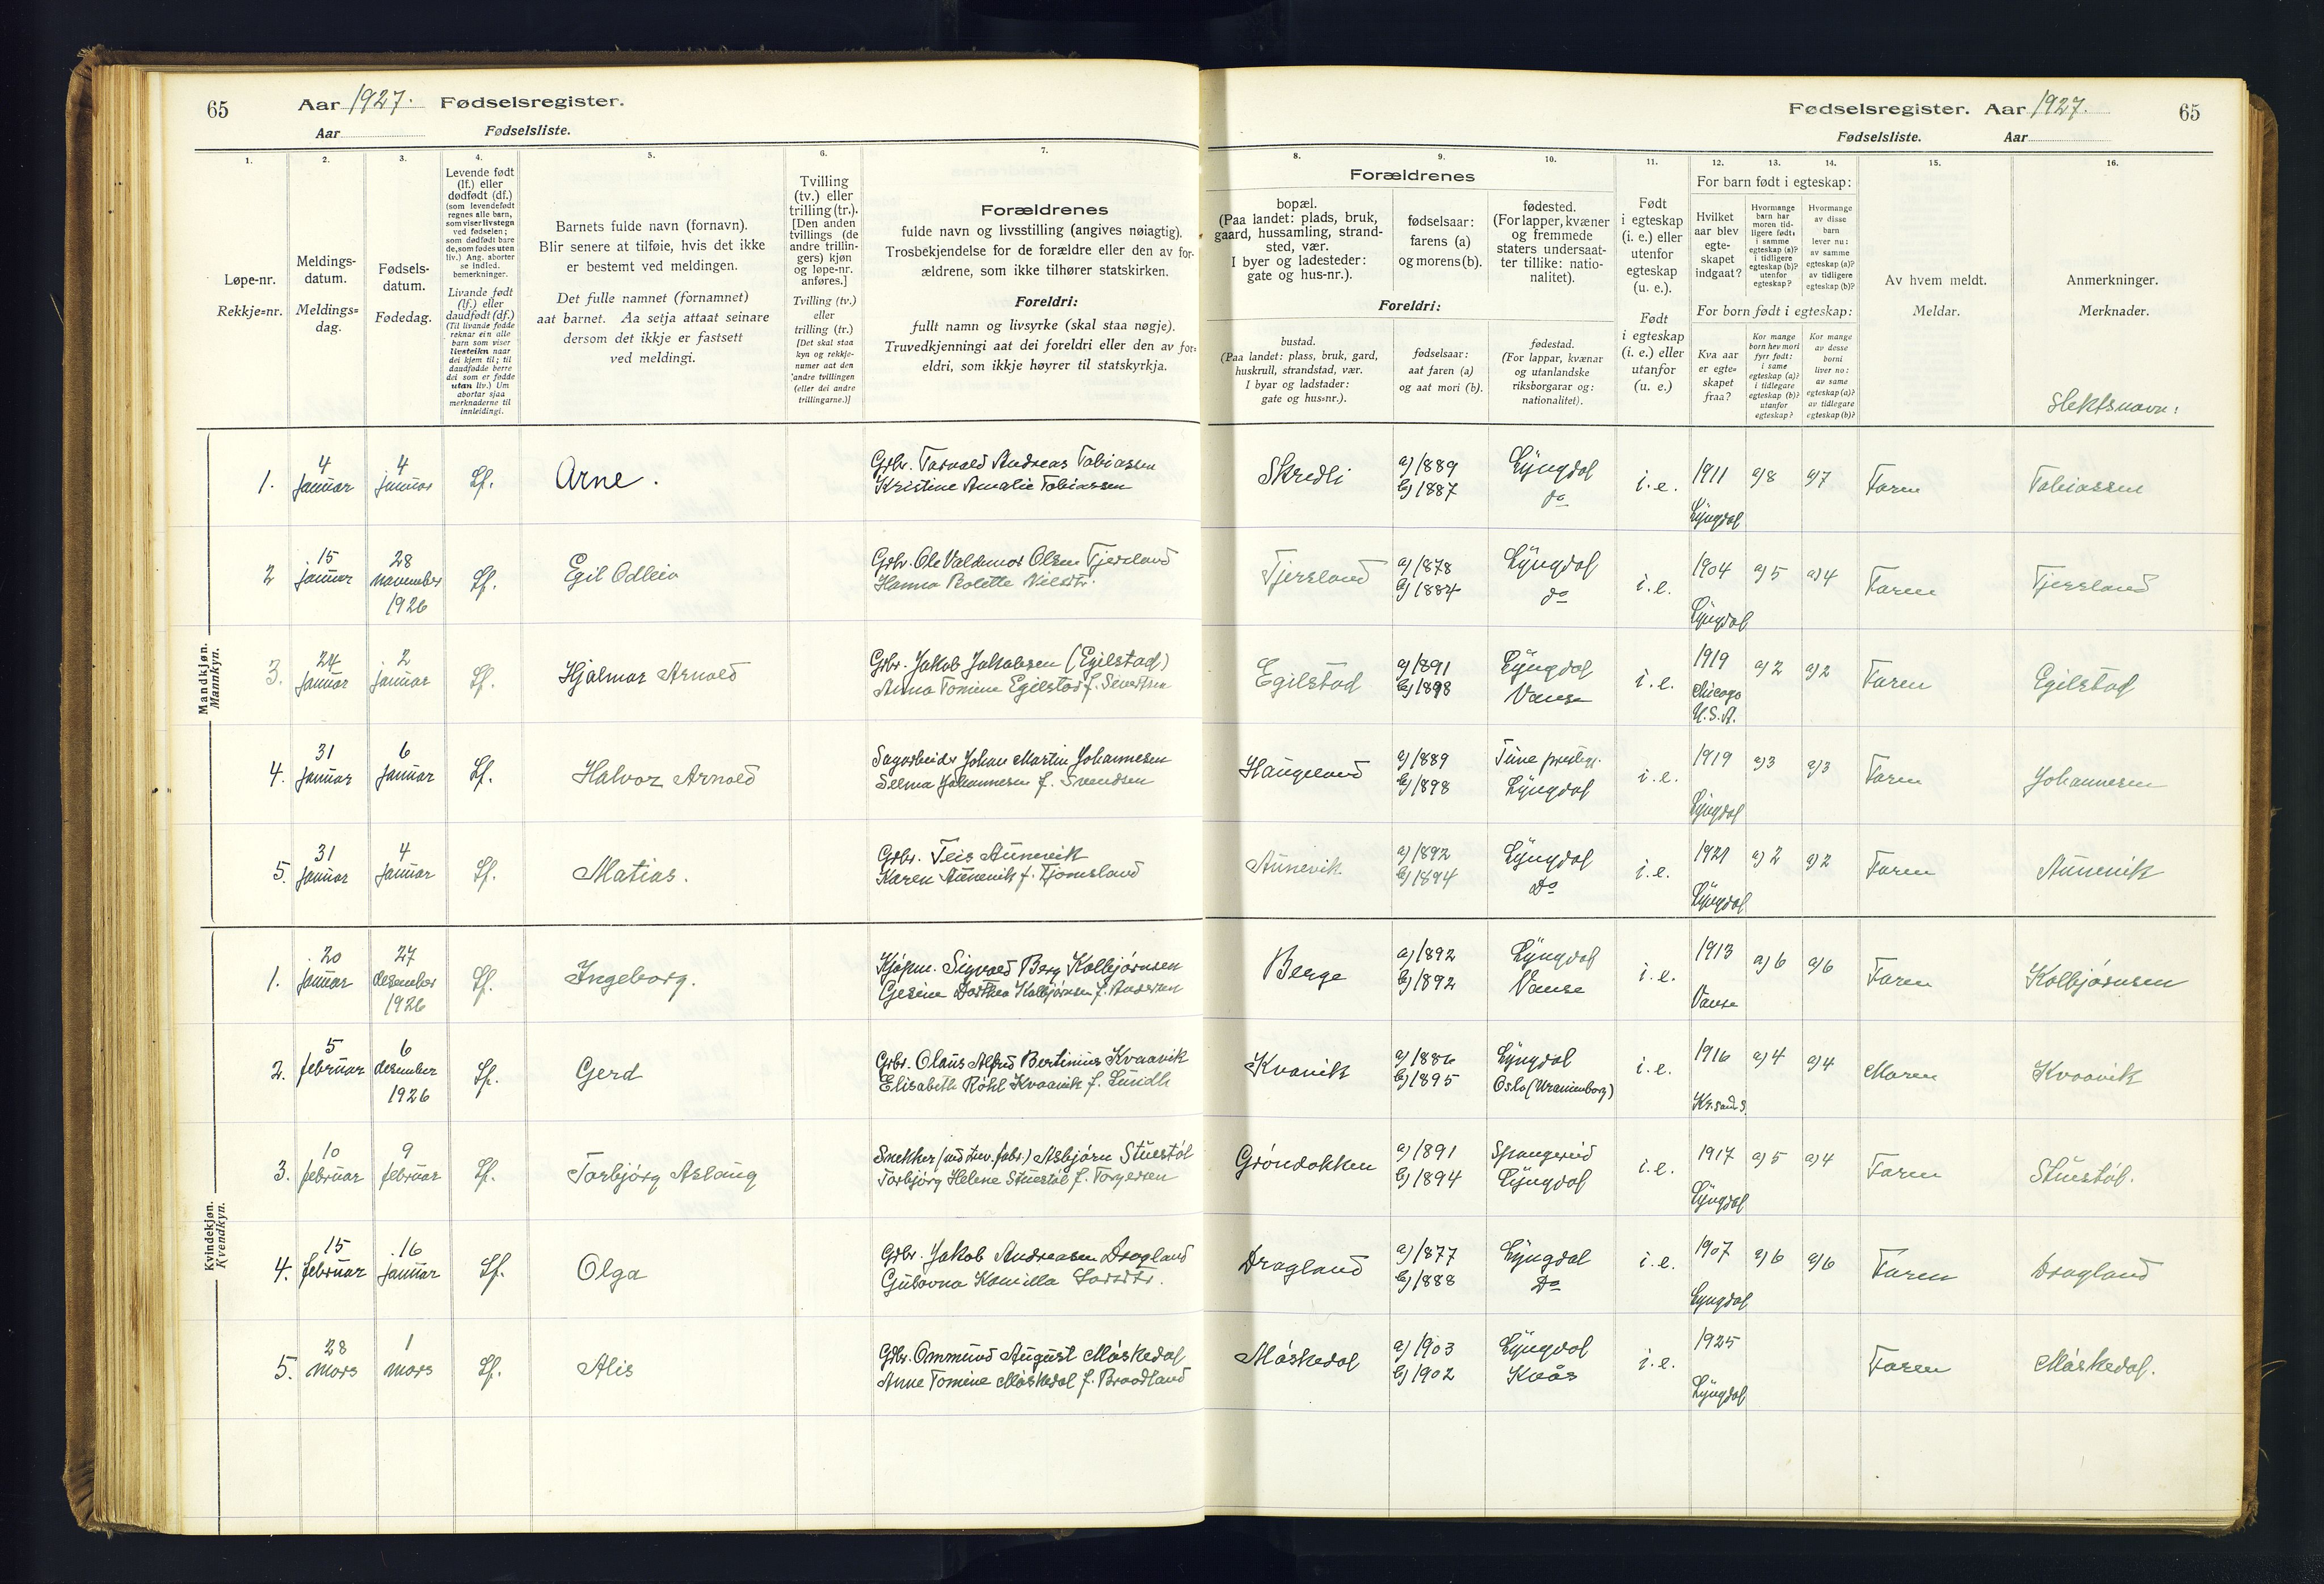 65 Aar 1927. Fødselsregister.
Aar Fødselsliste.
Fødselsregister. Aar 1927. 65
Fødselsliste. Aar
1. 2. 3. 4. 5. 6. 7. 8. 9. 10. 11. 12. 13. 14. 15. 16.
Løpe-nr.
Rekkje-nr.
Meldings-
datum.
Meldings-
dag.
Fødsels-
datum.
Fødedag.
Levende født
(lf.) eller
dødfødt (df.)
(som levendefødt
regnes alle barn,
som viser livstegn
ved fødselen;
som dødfødt bare
de, som fødes uten
liv.) Ang. aborter
se indled.
bemerkninger.
Livande født
(lf.) eller
daudfødt (df.)
(Til livande fødde
reknar ein alle
barn som viser
livsteikn naar
dei kjem til; til
daudfødde berre
dei som er fødde
utan liv.) Um
abortar sjaa
merknaderne til
innleidingi.
Barnets fulde navn (fornavn).
Blir senere at tilføie, hvis det ikke
er bestemt ved meldingen.
Det fulle namnet (fornamnet)
aat barnet. Aa setja attaat seinare
dersom det ikkje er fastsett
ved meldingi.
Tvilling
(tv.) eller
trilling (tr.).
[Den anden
tvillings (de
andre trillin-
gers) kjøn
og løpe-nr.
anføres.]
Tvilling (tv.)
eller
trilling (tr.)
[Det skal staa
kyn og rekkje-
numer aat den
andre tvillingen
(eller dei andre
trillingarne.)]
Forældrenes
fulde navn og livsstilling (angives nøiagtig).
Trosbekjendelse for de forældre eller den av for-
ældrene, som ikke tilhører statskirken.
Foreldri:
fullt namn og livsyrke (skal staa nøgje).
Truvedkjenningi aat dei foreldri eller den av for-
eldri, som ikkje høyrer til statskyrkja.
Forældrenes
bopæl.
(Paa landet: plads, bruk,
gaard, hussamling, strand-
sted, vær.
I byer og ladesteder:
gate og hus-nr.).
fødselsaar:
farens (a)
og morens (b).
fødested.
(For lapper, kvæner
og fremmede
staters undersaat-
ter tillike: natio-
nalitet).
Foreldri:
bustad.
(Paa landet: plass, bruk, gard,
huskrull, strandstad, vær.
I byar og ladstader:
gate og hus-nr.).
fødselsaar:
aat faren (a)
og aat mori (b).
fødestad.
(For lappar, kvænar
og utanlandske
riksborgarar og:
nationalitet).
Født
i egteskap
(i. e.) eller
utenfor
egteskap
(u. e.).
Født
i egteskap
(i. e.) eller
utanfor
(u. e.)
For barn født i egteskap:
Hvilket
aar blev
egte-
skapet
indgaat?
Hvormange
barn har
moren tid-
ligere født,
i samme
egteskap (a)?
i tidligere
egteskap (b)?
utenfor
egteskap?
Hvormange
av disse
barn
lever nu:
av samme
egteskap (a)?
av tidligere
egteskap (b)?
For born født i egteskap:
Kva aar
er egte-
skapet
fraa?
Kor mange
born hev mori
fyrr født:
i same
egteskap (a)?
i tidlegare
egteskap (b)?
utanfor
egteskap?
Kor mange
av desse
borni
liver no:
av same
egteskap (a)?
av tidlegare
egteskap (b)?
Av hvem meldt.
Meldar.
Anmerkninger.
Merknader.
Slektsnavn:
Mandkjøn.
Mannkyn.
1. 4 januar 4 januar Lf. Arne. Grbr. Tarvald Andreas Tobiassen
Kristine Amalie Tobiassen
Skredli a) 1889 b) 1887 Lyngdal do i.e. 1911 Lyngdal a) 8 a) 7 Faren Tobiassen
2 15 januar 28 november 1926 Lf. Egil Odleiv Grbr. Ole Valdemar Olsen Tjersland
Hanna Bolette Nilsdtr.
Tjersland a) 1878 b) 1884 Lyngdal do i.e. 1904 Lyngdal a) 5 a) 4 Faren Tjersland
3. 24 januar 2 januar Lf. Hjalmar Arnold Grbr. Jakob Jakobsen (Egilstad)
Anna Tomine Egilstad f. Sivertsen
Egilstad a) 1891 b) 1898 Lyngdal Vanse i.e. 1919 Chicago U.S.A. a) 2 a) 2 Faren Egilstad
4. 31 januar 6 januar Lf. Halvor Arnold Sagarbeider Johan Martin Johannesen
Selma Johannesen f. Svendsen
Haugeland a) 1889 b) 1898 Tune prestegj. Lyngdal i.e. 1919 Lyngdal a) 3 a) 3 Faren Johannesen
5. 31 januar 4 januar Lf. Matias. Grbr. Teis Aunevik
Karen Aunevik f. Tjomsland
Aunevik a) 1892 b) 1894 Lyngdal Do i.e. 1921 Lyngdal a) 2 a) 2 Faren Aunevik
Kvindekjøn.
Kvendkyn.
1. 20 januar 27 desember 1926 Lf. Ingeborg. Kjøpm. Sigvald Berg Kolbjørnsen
Gesine Dorthea Kolbjørnsen f. Andersen
Berge a) 1892 b) 1892 Lyngdal Vanse i.e. 1913 Vanse a) 6 a) 6 Faren Kolbjørnsen
2. 5 februar 6 desember 1926 Lf. Gerd Grbr. Olaus Alfred Bertinius Kvaavik
Elisabeth Röhl Kvaavik f. Smidh
Kvavik a) 1886 b) 1895 Lyngdal Oslo (Uranienborg) i.e. 1916 Kr.sand S. a) 4 a) 4 Moren Kvaavik
3. 10 februar 9 februar Lf. Torbjørg Aslaug Snekker Asbjørn Stuestøl
Torbjørg Helene Stuestøl f. Torgersen
Grøndokken a) 1891 b) 1894 Spangereid Lyngdal i.e. 1917 Lyngdal a) 5 a) 4 Faren Stuestøl.
4. 15 februar 16 januar Lf. Olga Grbr. Jakob Andreasen Dragland
Gustava Kamilla Larsdtr.
Dragland a) 1877 b) 1888 Lyngdal Do i.e. 1907 Lyngdal a) 6 a) 6 Faren Dragland
5. 28 mars 1 mars Lf. Alis Grbr. Ommund August Møskedal
Anne Tomine Møskedal f. Braadland
Møskedal a) 1903 b) 1902 Lyngdal Kvås i.e. 1925 Lyngdal Faren Møskedal.